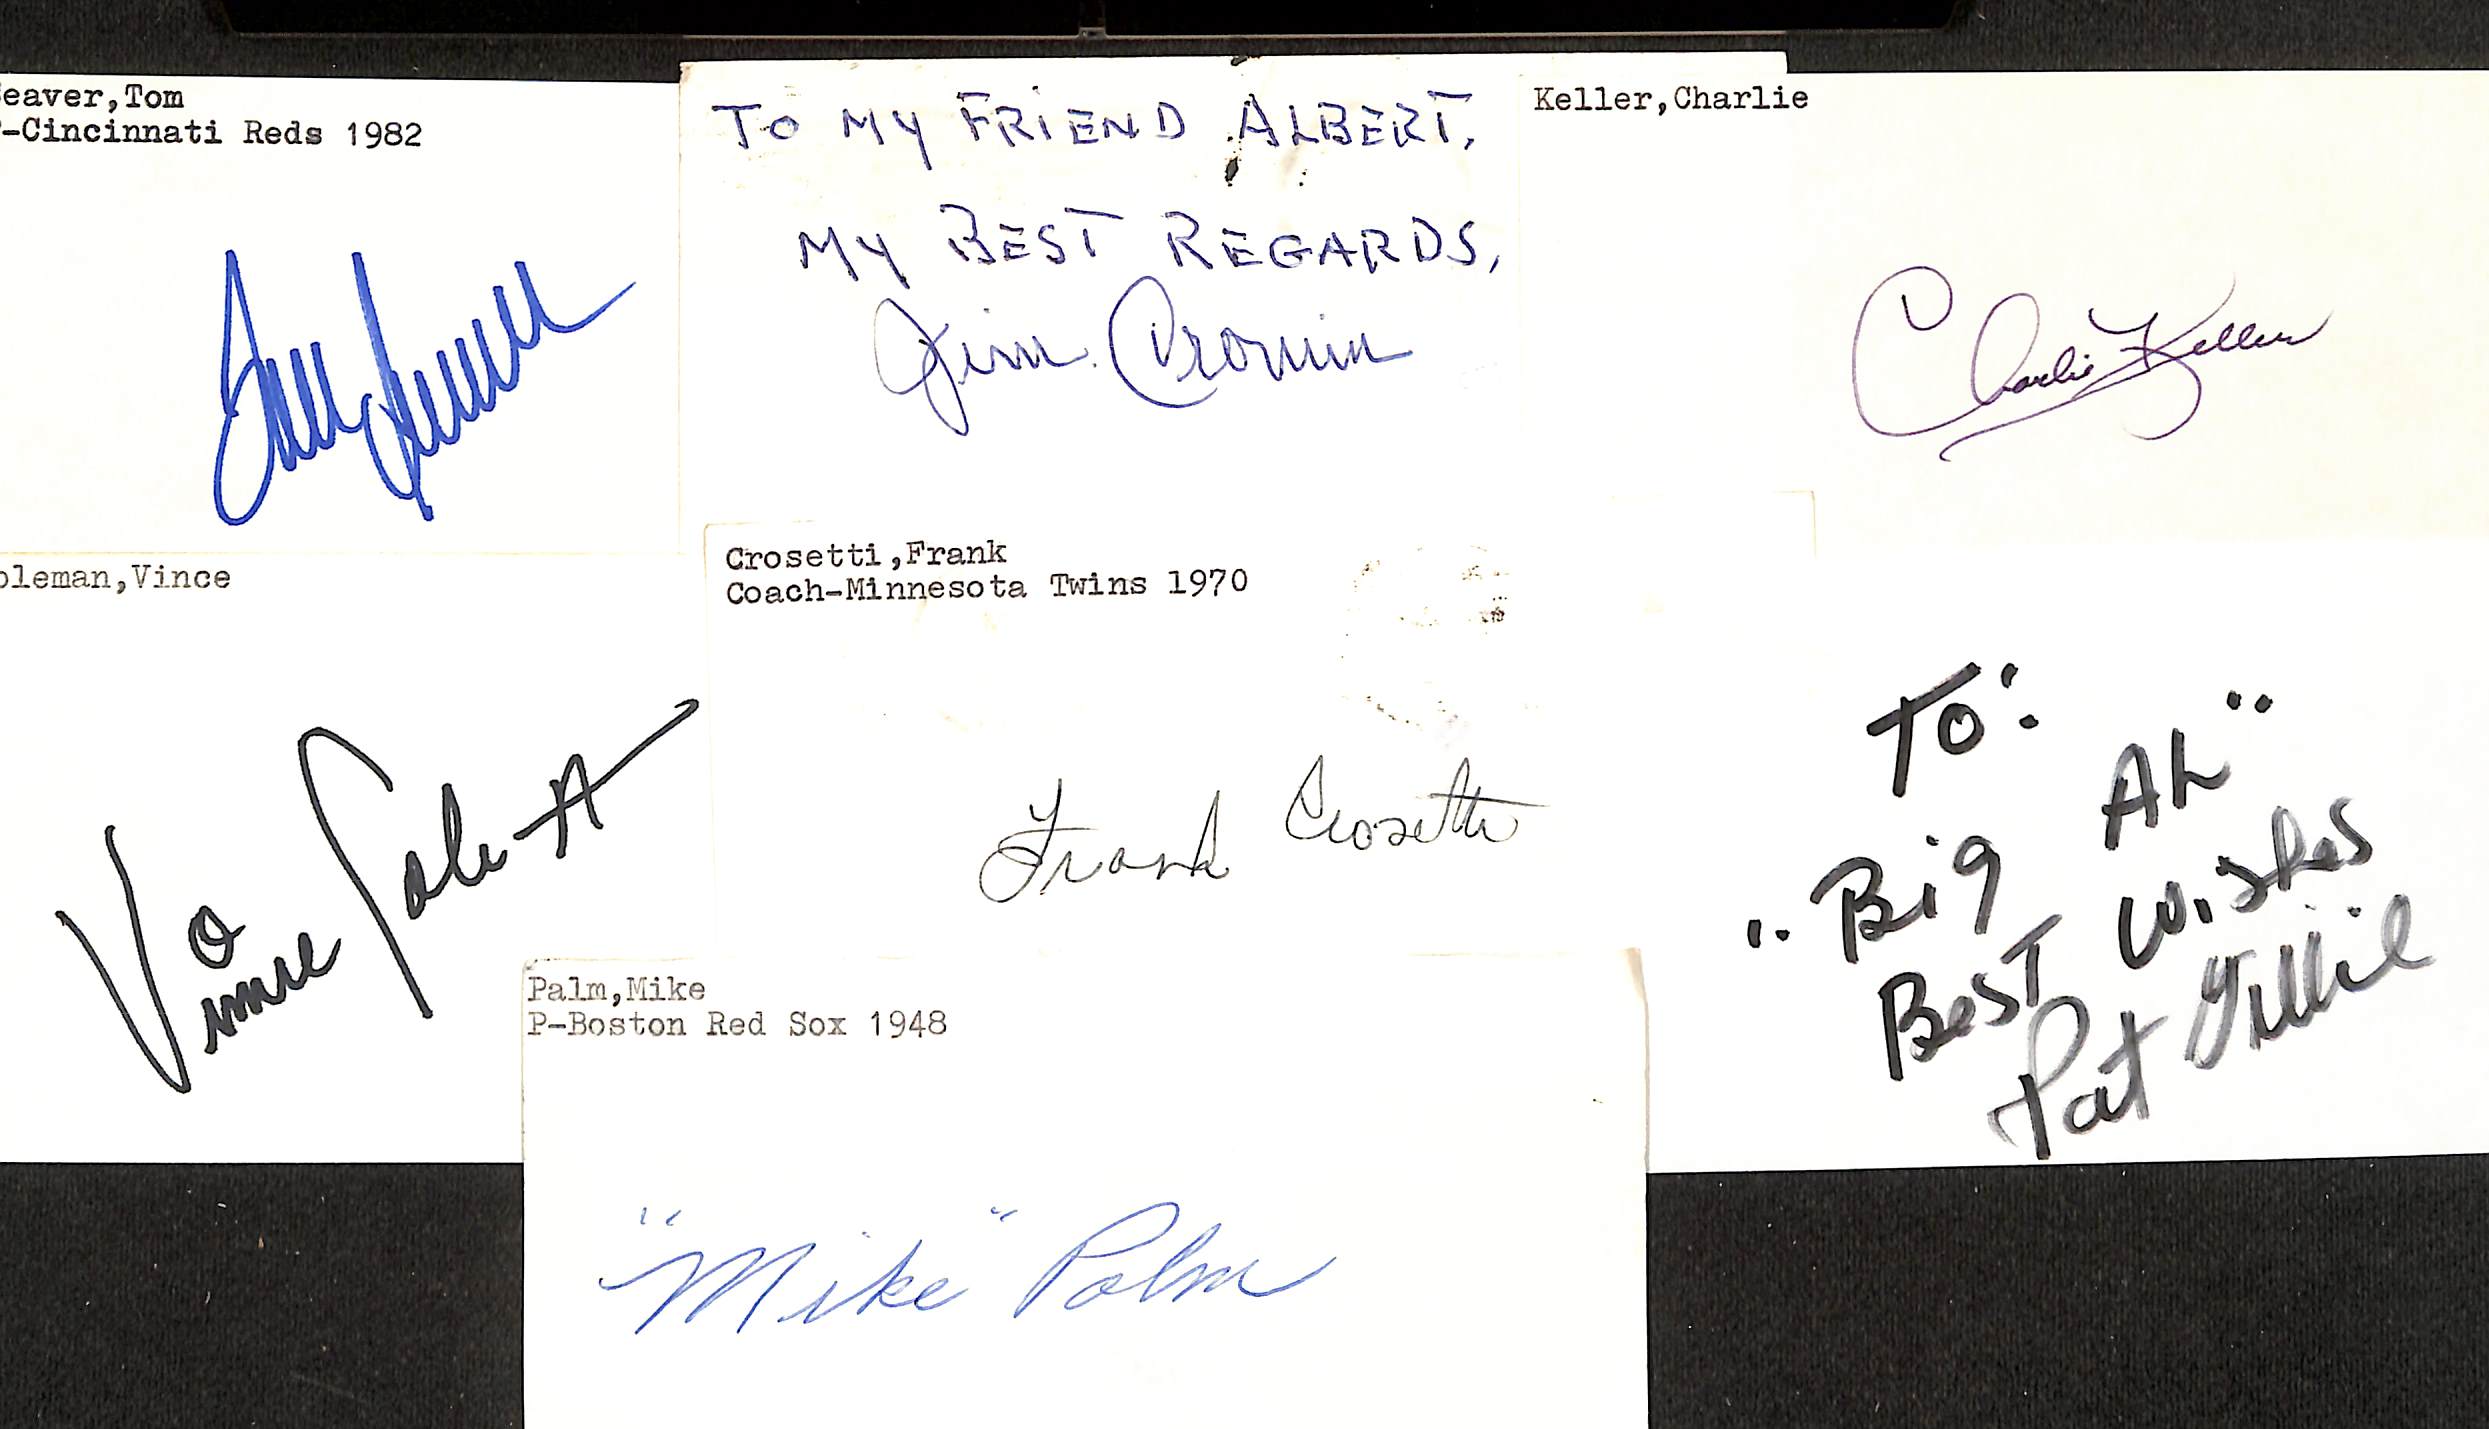 eaver,Tom
-Cincinnati Reds 1982
TO MY FRIEND ALBERT,
MY BEST REGARDS,
Jim Cronin
Keller,Charlie
Charlie Keller
oleman,Vince
Vince
Crosetti,Frank
Coach-Minnesota Twins 1970
Frank Crosetti
TO:
"Big AL"
Best Wishes
Pat Gillick
Palm,Mike
P-Boston Red Sox 1948
"Mike" Palm